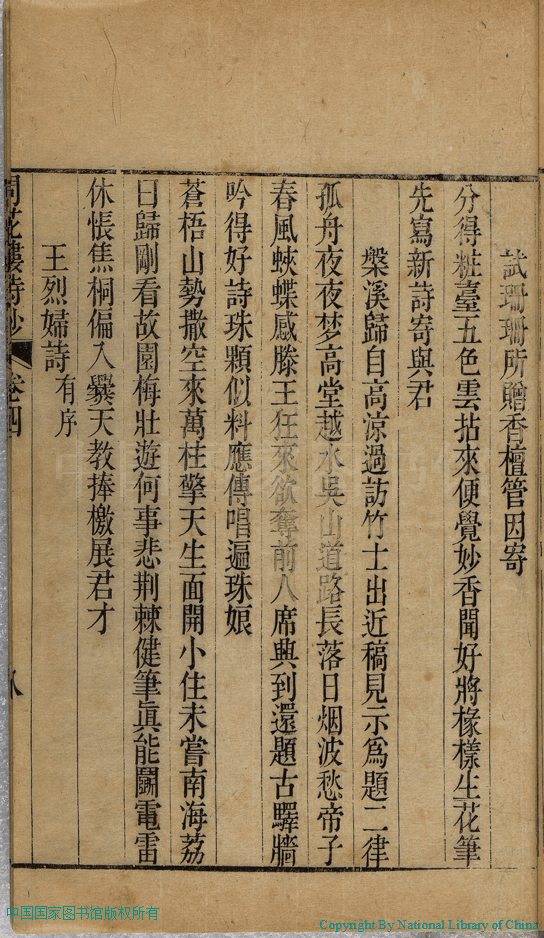 試珊珊所贈香檀管因寄
分得粧臺五色雲拈來便覺妙香聞好將椽樣生花筆
先寫新詩寄與君
槃溪歸自高涼過訪竹士出近稿見示爲題二律
孤舟夜夜梦高堂越水吳山道路長落日烟波愁帝子
春風蛺蝶感滕王狂來欲奪前人席興到還題古驛牆
吟得好詩珠顆似料應傳唱遍珠娘
蒼梧山勢撒空來萬柱擎天生面開小住未嘗南海荔
曰歸剛看故園梅壯遊何事悲荆棘健筆眞能鬭電雷
休悵焦桐偏入爨天教捧檄展君才
王烈婦詩有序
問花樓詩鈔 卷四 八
中国国家图书馆版权所有
Copyright By National Library of China